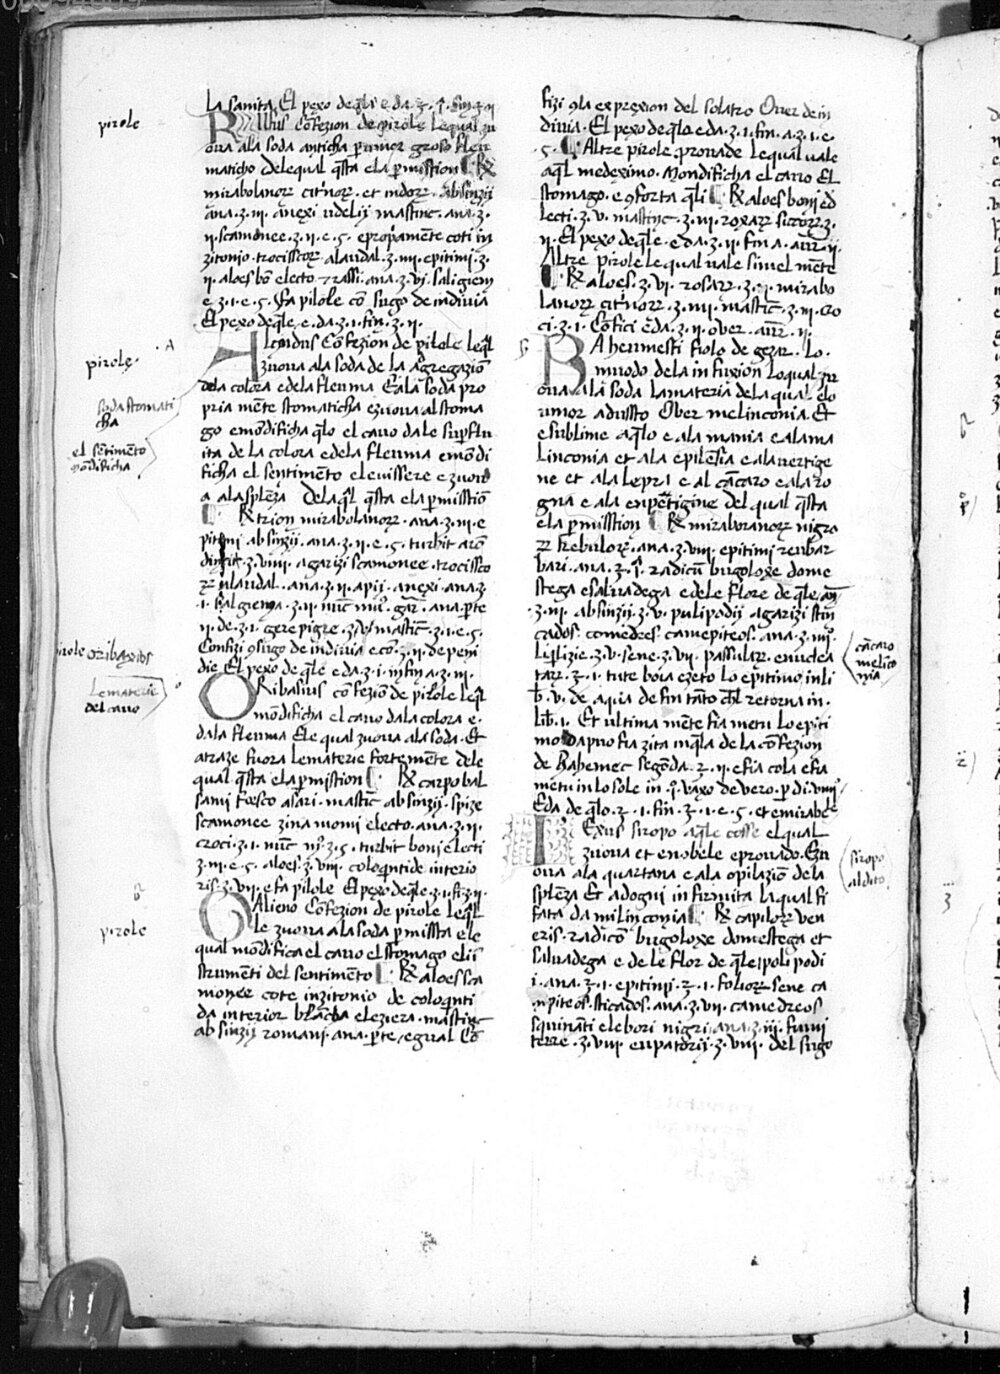 pirole
la sanita. El pexo de q̄lla e da .ʒ. i. fin .ʒ. ii
Ruffus Cōfezion de pirole le qual zu
oua ala soda anticha p̄ umor groso fleu
maticho de le qual q̄sta e la p̄mistion ℞
mirabolanoꝝ citrinoꝝ. et indoꝝ. absinzii
ana .ʒ. iii. anexi udelii mastinc. ana .ʒ.
ii. scamonee .ʒ. ii. e .s. epropiamente coti in
zitonio. trociscoꝝ alandal .ʒ. iiii. epitimi .ʒ.
ii. aloes bō electo. ana .ʒ. vi. sal giem
e .ʒ. i. e .s. fa pilole cō sugo de indiuia
El pexo de q̄lle. e. da .ʒ. i. fin .ʒ. ii.
pirole. A
Alendus Cōfezion de pilole le q̄l
zuoua ala soda de la agregazion
dela colora e dela fleuma E ala soda pro
pria mente stomaticha e zuoua al stoma
go e mōdificha q̄lo el cauo dale sup̄flu
ita de la colora e dela fleuma e mōdi
ficha el sentimēto e le uissere e zuoua
a ala splēza de la q̄l q̄sta e la p̄mistiō
soda stomati
cha
el sētimēto
mōdificha
℞ trion mirabolanoꝝ. ana .ʒ. iii. e
pitimi absinzii. ana .ʒ. ii. e .s. turbit
.ʒ. viiii. agarizi scamonee. trocissco
ꝝ alandal. ana .ʒ. ii. apii. anexi. ana .ʒ.
.i. sal giema .ʒ. ii. nuc̄ mu᷑. gar. ana. p̄te
ii. de .ʒ. i. gere pigre .ʒ. v. mastic̄ .ʒ. i. e .s.
Confizi 9 sugo de indiuia e cō .ʒ. ii. de peni
die El pexo de q̄lle e da .ʒ. i. in fin a .ʒ. iii.
pirole oribaxibs
Le materie
del cauo
Oribasius confeziō de pirole le q̄l
mōdificha el cauo dala colora e.
dala fleuma E le qual zuoua ala soda. Et
atraze fuora le materie fortemēte dele
qual q̄sta e la p̄mistion ℞ carpobal
sami fosco asari. mastic̄ absinzii. spize
scamonee zinamomi electo. ana .ʒ. ii.
croci .ʒ. i. nuc̄ .ʒ. s. turbit boni electi
.ʒ. iii. e .s. aloes .ʒ. viii. coloquntide interio
ris .ʒ. vii. e fa pilole El pexo de q̄le .ʒ. i. fi .ʒ. ii.
pirole
Galieno Cōfezion de pirole le q̄l
le zuoua ala soda p̄ missta e le
qual mōdifica el cauo el stomago e li i
strumēti del sentimēto ℞ aloes sca
monee cote in zitonio de coloqnti
da interior biācha e leziera. mastinc
absinzii romani. ana. p̄te. egual Cō
fizi 9la expresxion del solatro Ouer de in
diuia. El pexo de q̄lo e da .ʒ. i. fin. a .ʒ. i. e.
.s. Altre pirole. prouade le qual uale
a q̄l medeximo. Mondificha el cauo El
stomago. e 9forta q̄li ℞ aloes boni ed
lecti .ʒ. v. mastinc .ʒ. iii. roxaꝝ siccoꝝ .ʒ.
ii. El pexo de q̄le. e da .ʒ. ii. fin a. aur. ii.
Altre pirole le qual uale simel mēte
℞ aloes .ʒ. vi. rosaꝝ .ʒ. ii. mirabo
lanoꝝ citrinoꝝ .ʒ. iiii. mastic̄ .ʒ. iii. cro
ci .ʒ. i. Cōfici e da .ʒ. ii. ouer. aur. ii.
Bahemesti fiolo de gezar. Lo.
muodo de la infuxiōn lo qual zu
oua ala soda la materia dela qual elo
umor adussto Ouer melinconia. Et
e sublime a q̄lo e ala mania e ala ma
linconia et ala epilēsia e ala uertige
ne et ala lepra e al cācaro e ala ro
gna e ala enpetigine del qual q̄sta
e la p̄mistion ℞ mirabolanoꝝ nigro
ꝝ kebuloꝝ. ana .ʒ. viii. epitimi reubar
bari. ana .ʒ. i. radicū bugoloxe dome
stega e saluadega e dele flore de q̄lle. an̄
.ʒ. iii. absinzii .ʒ. v. pulipodii agarizi stin
cados. comedeos. camepiteos. ana .ʒ. iiii.
liq̄rizie .ʒ. v. sene .ʒ. vii. passulaꝝ. enuclea
taꝝ .ʒ. i. tute boia exeto lo epitimo in li
b̄. v. de aqua de fin tāto chel retorna in.
lib̄. i. Et ultima mēte fia metu lo epiti
mo da puo fia zita in q̄la de la cōfezion
de Bahemec segōda .ʒ. ii. e fia cola e fia
metu in lo sole in .i. vaxo de vero. p̄ di. viiii
E da de q̄lo .ʒ. i. fin .ʒ. i. e .s. et e mirabe
cācaro
melīco
nia
Iexus siropo a q̄le cosse el qual
zuoua et e nobele e prouado. E zu
oua ala quartana e ala opilaziō de la
splēza Et ad ogni infirmita la qual fi
fata da milinconia ℞ capiloꝝ ven
eris. radicō bugoloxe domestega et
saluadega e de le flor de q̄le. polipodi
i. ana .ʒ. i. epitimi .ʒ. i. folioꝝ sene ca
mpiteos. sticados. ana .ʒ. vii. camedreos
squinanti elebori nigri. ana .ʒ. iii. fumi
terre .ʒ. viii. eupatorii .ʒ. viii. del sugo
siropo
al dito